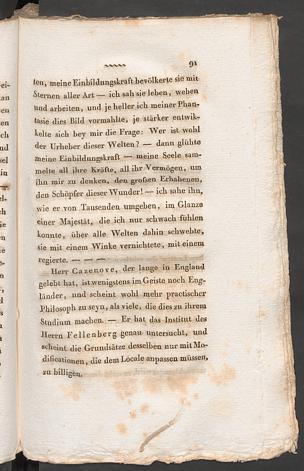 91
ten, meine Einbildungskraft bevölkerte sie mit
Sternen aller Art — ich sah sie leben, weben
und arbeiten, und je heller ich meiner Phan-
tasie dies Bild vormahlte, je stärker entwik-
kelte sich bey mir die Frage: Wer ist wohl
der Urheber dieser Welten? — dann glühte
meine Einbildungskraft — meine Seele sam-
melte all ihre Kräfte, all ihr Vermögen, um
ihn mir zu denken, den großen Erhabenen,
den Schöpfer dieser Wunder! — ich sahe ihn,
wie er von Tausenden umgeben, im Glanze
einer Majestät, die ich nur schwach fühlen
konnte, über alle Welten dahin schwebte,
sie mit einem Winke vernichtete, mit einem
regierte. — — —
Herr Cazenove, der lange in England
gelebt hat, ist wenigstens im Geiste noch Eng-
länder, und scheint wohl mehr practischer
Philosoph zu seyn, als viele, die dies zu ihrem
Studium machen. — Er hat das Institut des
Herrn Fellenberg genau untersucht, und
scheint die Grundsätze desselben nur mit Mo-
dificationen, die dem Locale anpassen müssen,
zu billigen.